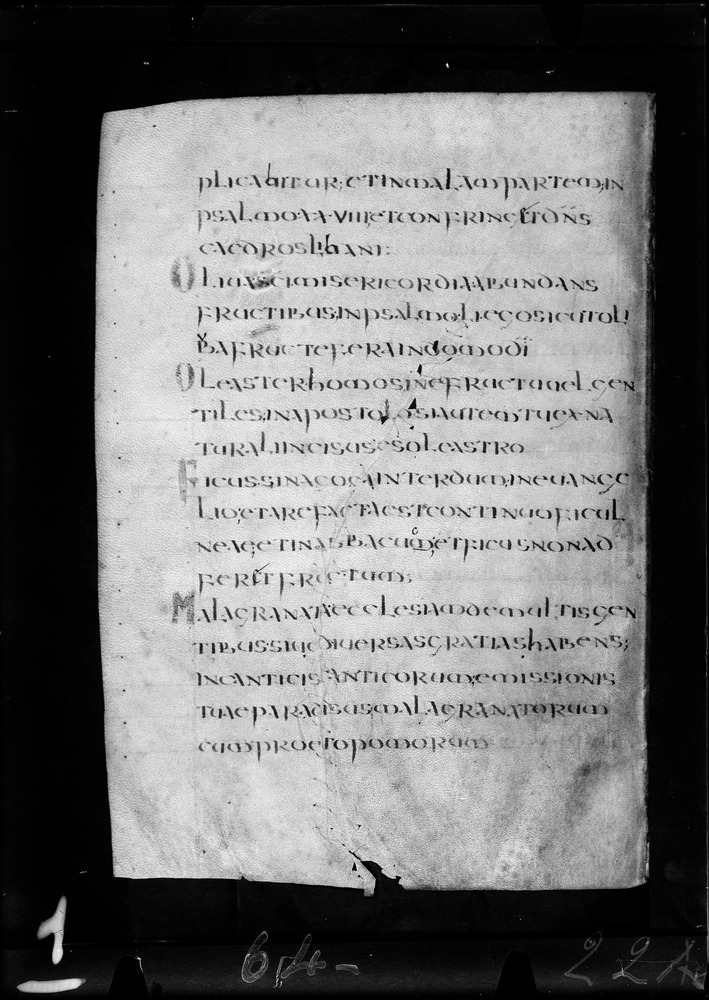 plicabitur; et in malam partem; in
psalmo XXVIII; et confringet dns
caedros libani:
Olivasci misericordia abundans
fructibus; in psalmo L; ego sicut oli
va fructefera in domo di
Oleaster homo sine fructu vel gen
tiles; in apostolo; si autem tu ex na
turali incisus es oleastro
Ficus sinagoga interdum; in evange
lio; et arefacta est continuo ficul
nea; et in abbacum; et ficus non ad
ferit fructum;
Malagranata ecclesiam de multis gen
tibus sive diversas gratias habens;
in canticis canticorum; emissionis
tuae paradisus malagranatorum
cum pomorum
64-
22A
1